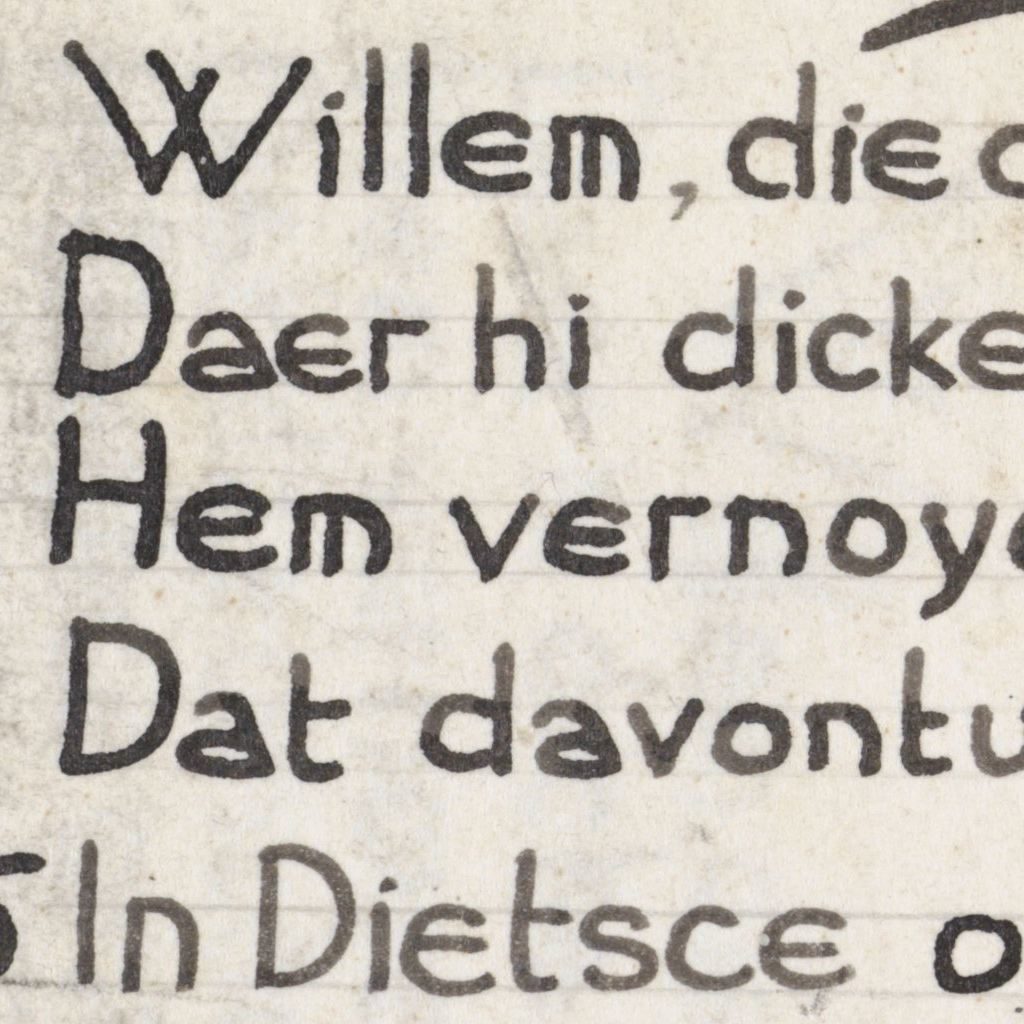 Willem, die
Daer hi dicke
Hem vernoye
Dat davontu
5 In Dietsce